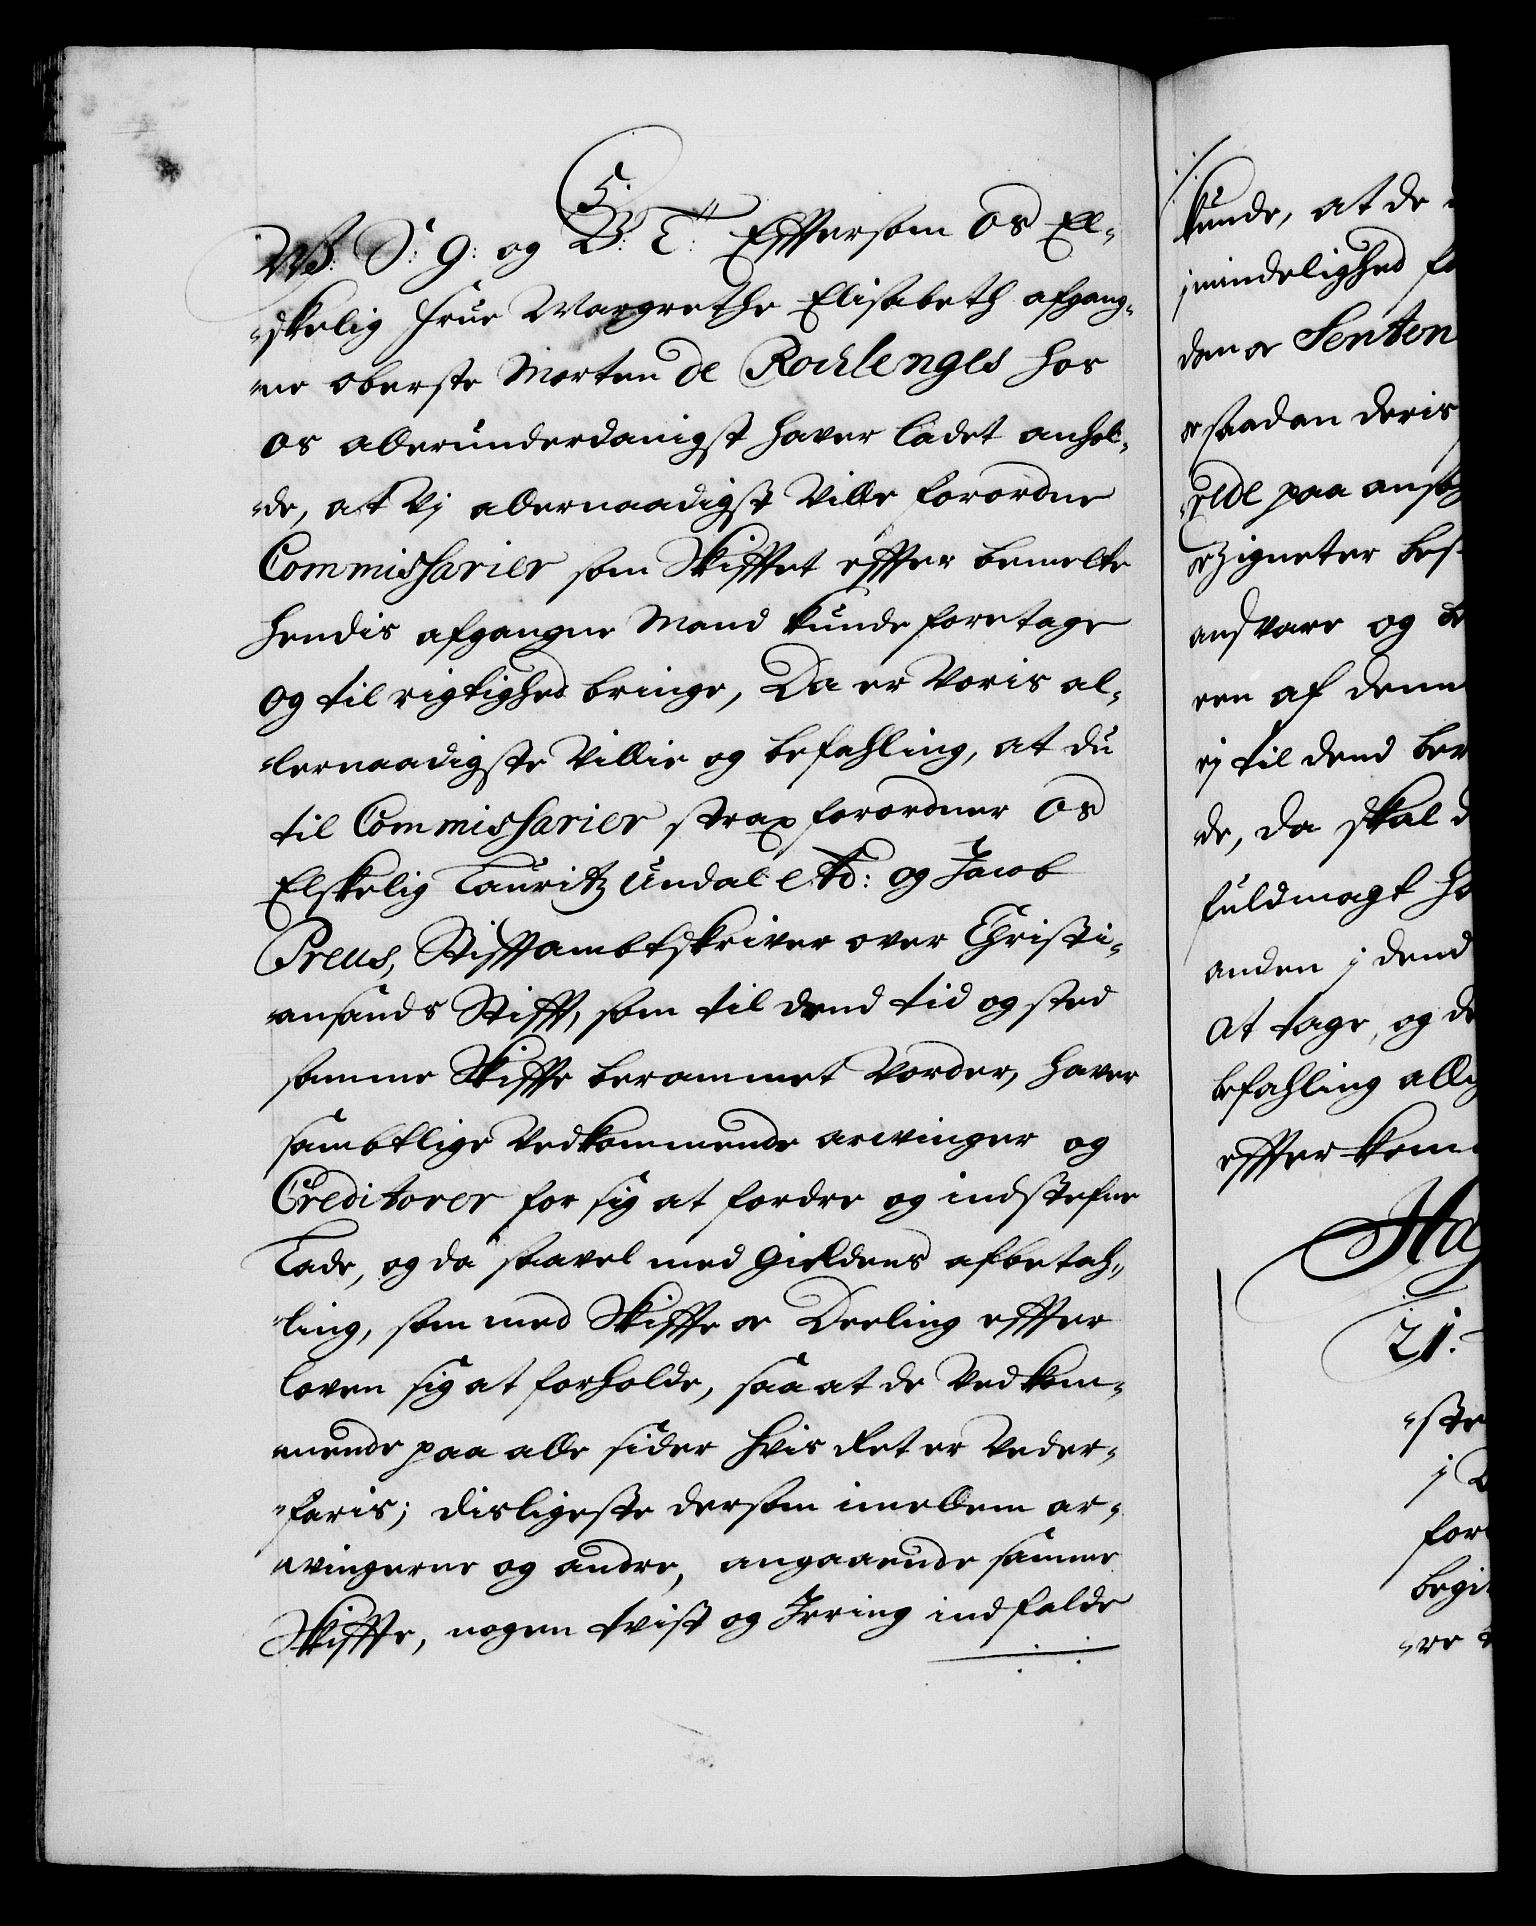 5.
W: S: G: og B: T: Efftersom Os El-
skelig Frue Margrethe Elisabeth afgang-
ne oberste Morten de Rochlenges hos
os allerunderdanigst haver ladet anhol-
de, at Vj allernaadigst Ville forordne
Commissarier som Skifftet effter bemelte
hendis afgangne Mand kunde foretage
og til rigtighed bringe, Da er Voris al-
lernaadigste Villie og befahling, at du
til Commissarier strax forordner Os
Elskelig Lauritz Undal etc: og Jacob
Preus, Stifftambtskriver over Christi-
ansands Stifft, som til dend tid og sted
samme Skiffte berammet Vorder, haver
sambtlige Vedkommende arvinger og
Creditorer for sig at fordre og indstefne
Lade, og da saavel med Gieldens afbetah-
ling, som med Skiffte oc Deeling effter
loven sig at forholde, saa at de Vedkom-
mende paa alle sider hvis Ret er Veder-
faris; disligeste dersom imellem ar-
vingerne og andre, angaaende samme
Skiffte, nogen tvist og Irring indfalde
kunde, at de
mindelighed
dem or Senten
saadan deris
rede paa
andsvare og
een af denn
ej til dend
de, da skal
fuldmagt
anden j dend
at tage, og
befahling
effterkom
21.
ste
j
for
begi
re